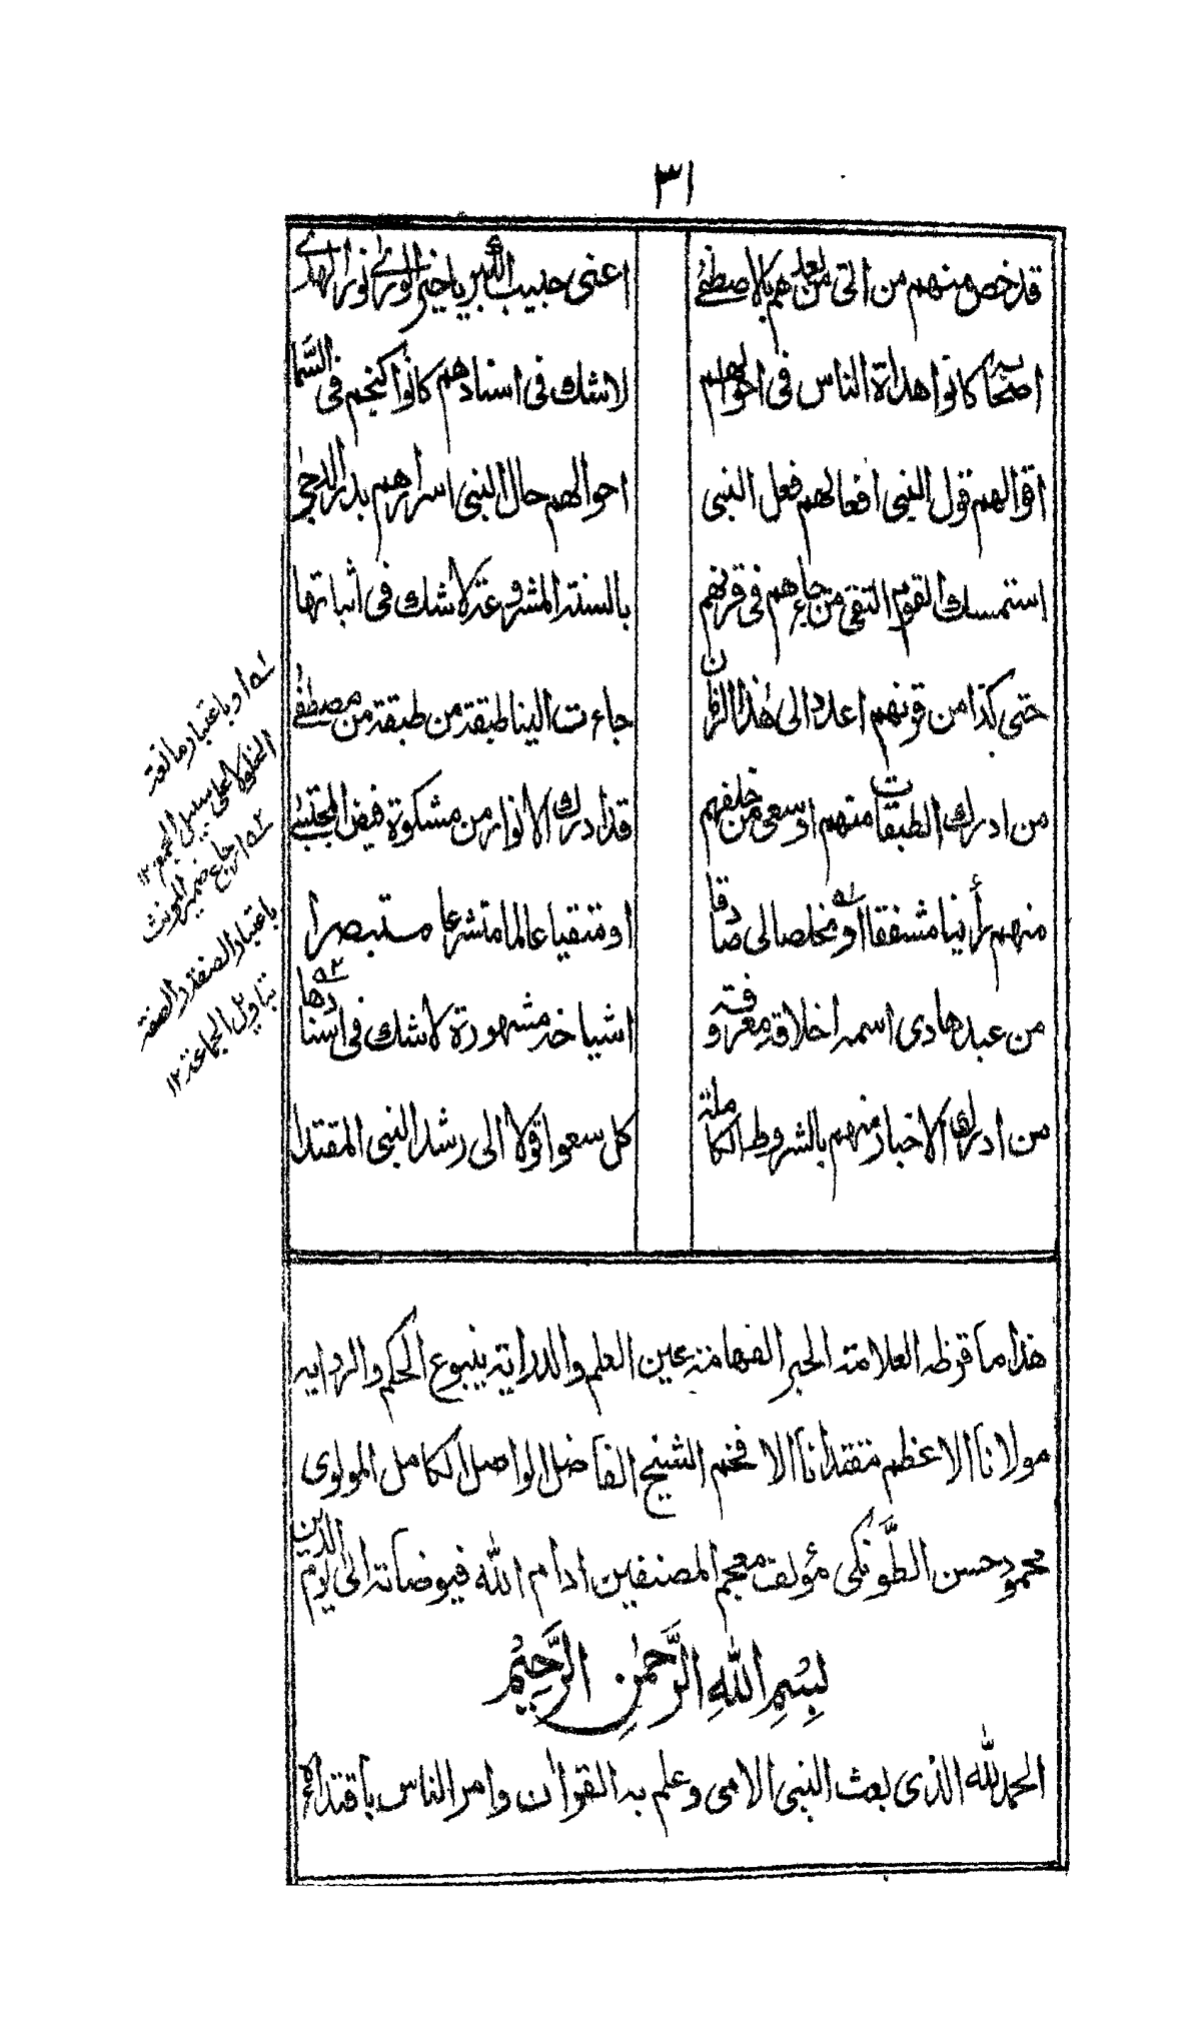 ٣١
قد خص منهم من اتى من بعدهم بالاصطفٰے اعنى حبيب الله البر يا خير الورٰى نور الهدٰے
اصحابه كانوا هداة الناس فى احوالهم لاشك فى اسنادهم كانوا كنجم فى السَّما
اقوالهم قول النبى افعالهم فعل النبى احوالهم حال النبى اسرارهم بدر الدجٰى
استمسك القوم التقى من جاءهم فى قرنهم بالسنة المشروعة لاشك فى اثباتها
حتى كذا من قرنهم اعداد الى هٰذا الزمان جاءت الينا طبقة من طبقة من مصطفٰے
من ادرك الطبقات منهم او سعى من خلفهم قد ادرك الانوار من مشكوة فيض المجتبٰے
منهم رأينا مشفقا او مخلصا لى صادقا او متقيا عالما متشرعا مستبصرا
من عبد هادى اسمه اخلاقه معروفة اشياخه مشهورة لاشك فى اسنادها
من ادرك الاخيار منهم بالشروط الكاملة كل سعوا قولا الى رشد النبى المقتدا
ه١ او باعتبار مانعة
الخلو لا على سبيل الجمع ١٢
ه٢ ارجاع ضمير المونث
باعتبار الصفة والصفة
بتاويل الجماعة ١٢
هذا ما قرظه العلامة الحبر الفهامة عين العلم والدراية ينبوع الحكم والرواية
مولانا الاعظم مقتدانا الافخم الشيخ الفاضل الواصل الكامل المولوى
محمود حسن الطَّونكى مؤلف معجم المصنفين ادام الله فيوضاته الى يوم الدين
بِسْمِ اللهِ الرَّحْمٰنِ الرَّحِيْمِ
الحمد لله الذى بعث النبى الامى وعلم به القرآن وامر الناس باقتداءه